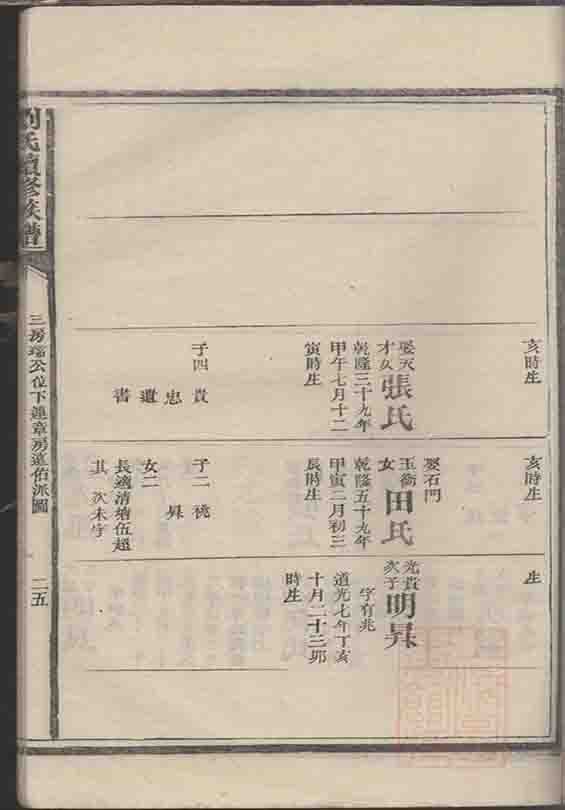 劉氏續修族譜
三房瑞公位下蓮章房遠佑派圖
二五
亥時生
娶天
才女
張氏
乾隆三十九年
甲午七月十二
寅時生
子四 貴
忠
還
書
亥時生
娶石門
玉衡
女
田氏
乾隆五十九年
甲寅二月初三
辰時生
子二 桃
昇
女二
長適清增伍超
其 次未字
生
光貴
次子
明昇
字有兆
道光七年丁亥
十月二十三卯
時生